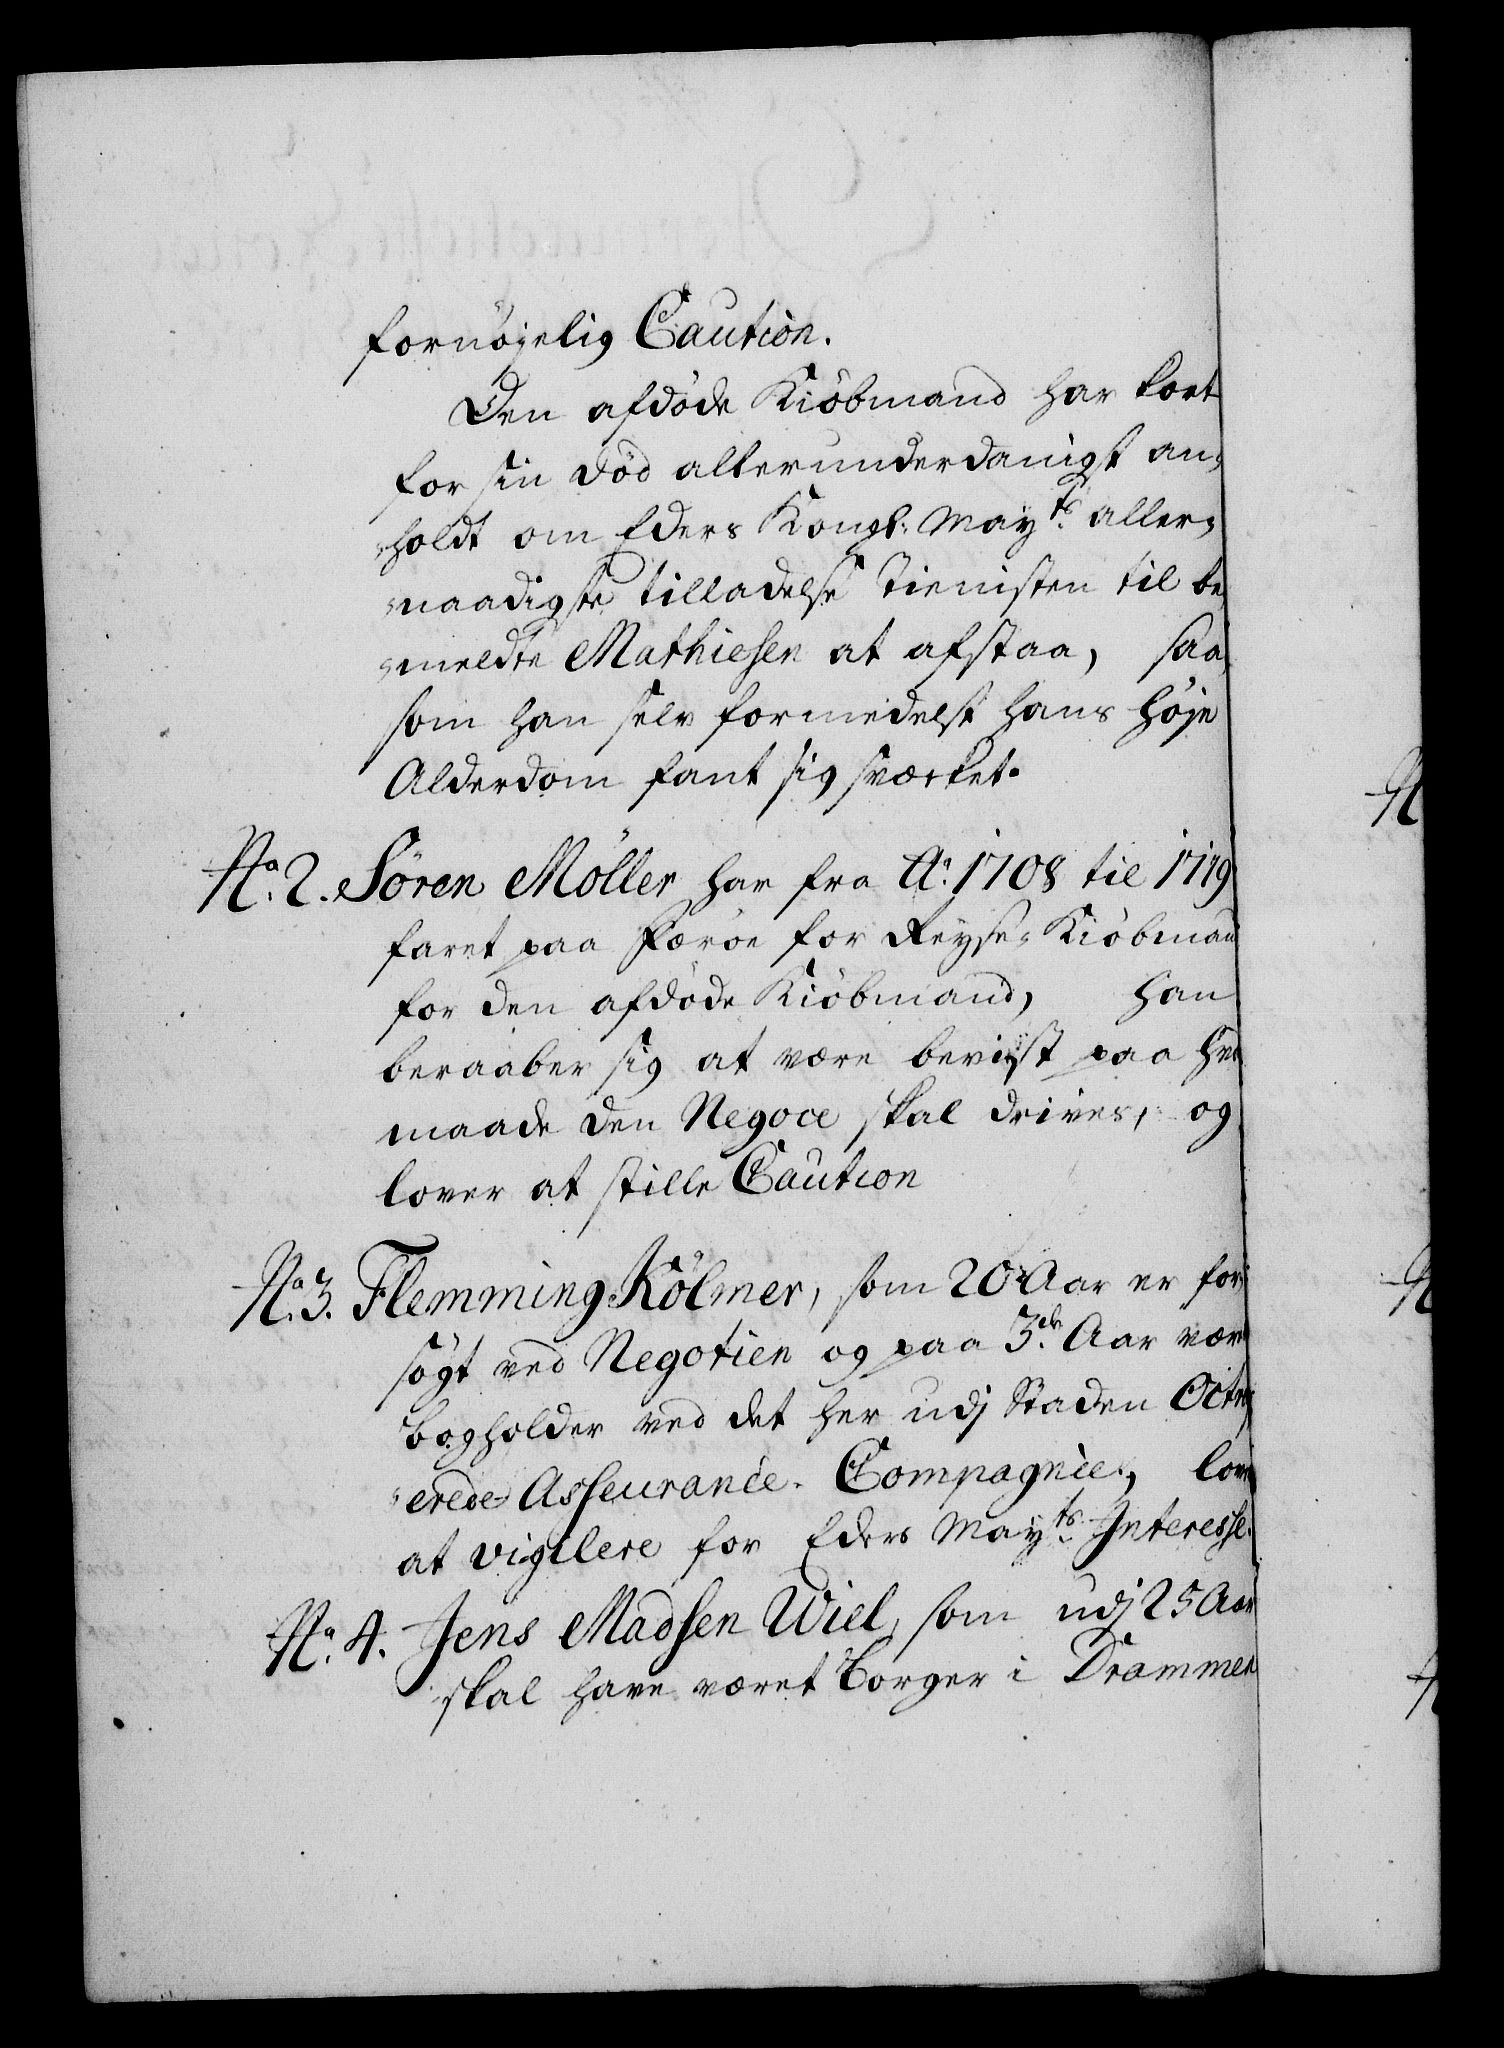 fornöjelig Caution.
Den afdöde Kiöbmand har kort
for sin död allerunderdanigst an-
holdt om Eders Kongl: Mayts aller-
naadigste tilladelse Tienisten til be
meldte Mathiesen at afstaa, saa
som han selv formedelst hans höje
Alderdom fant sig svækket.
No. 2. Sören Möller har fra Ao. 1708 til 1719
faret paa Færöe for Reyse- Kiöbman
for den afdöde Kiöbmand, han
beraaber sig at være bevist paa hva
maade den Negoce skal drives, og
lover at stille Caution
No. 3. Flemming Kölmer, som 20 Aar er for-
sögt ved Negotien og paa 3de Aar været
bogholder ved det her udj Staden Octroj
erede Asseurance- Compagnie, lover
at vigilere for Eders Mayts Interesse.
No. 4. Jens Madsen Wiel, som udj 25 Aar
skal have været borger i Drammen
N
N